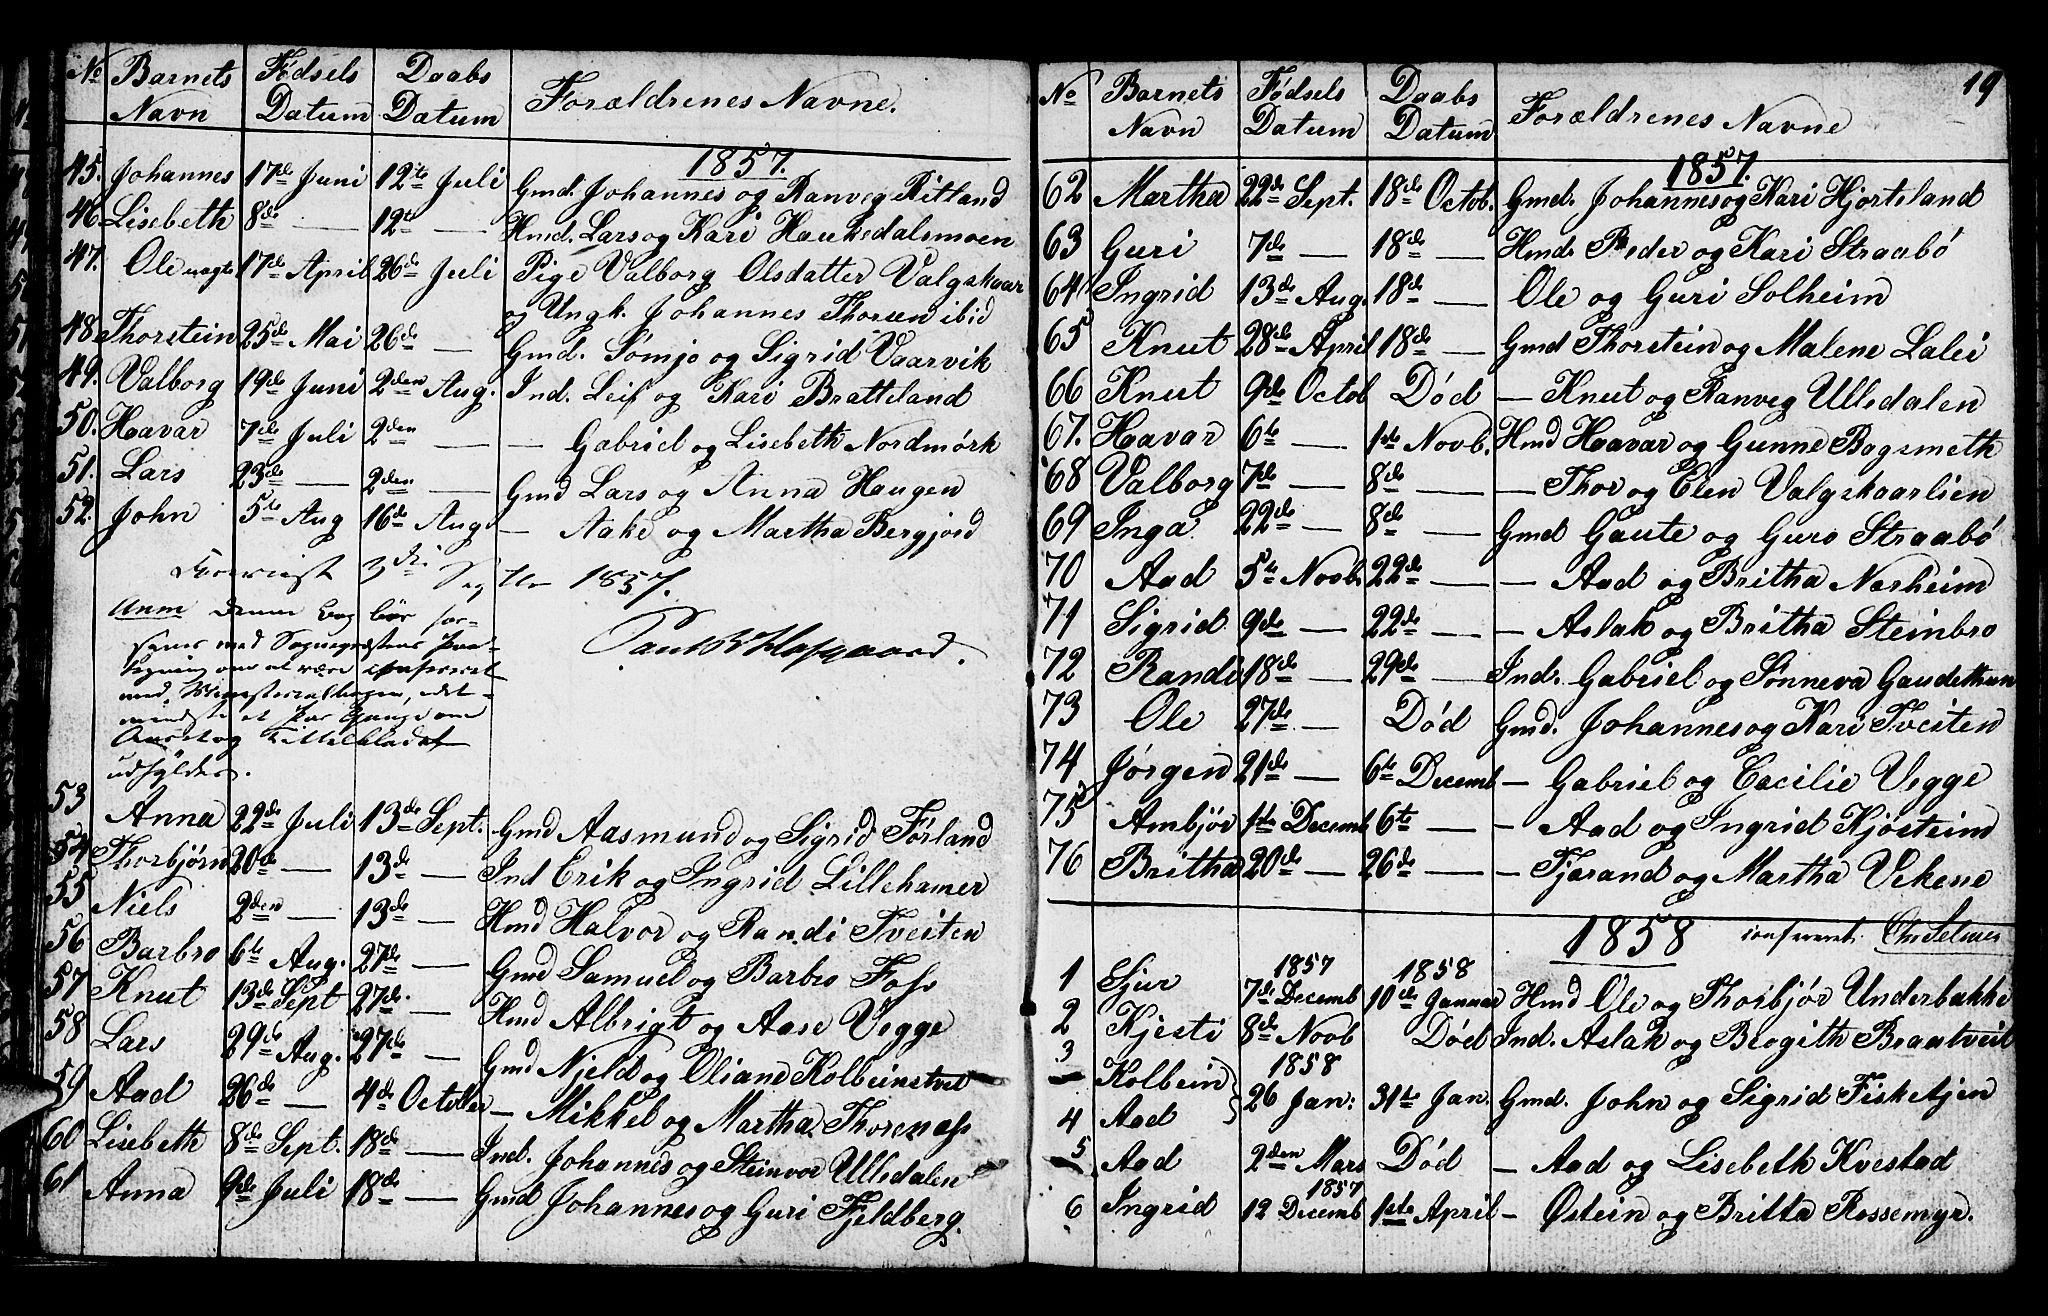 No Barnets Navn Fødsels Datum Daabs Datum Forældrenes Navne.
1857.
45. Johannes 17de Juni 12te Juli Gmd. Johannes og Ranveg Ritland
46 Lisebeth 8de — 12te — Hmd. Lars og Kari Haukedalsmoen
47. Ole uægte 17de April 26de Juli Pige Valborg Olsdatter Valgskaar
og Ungk. Johannes Thorsen ibid
48. Thorstein 25de Mai 26de — Gmd. Sømjo og Sigrid Vaarvik
49. Valborg 19de Juni 2den Aug. Ind. Leif og Kari Bratteland
50. Haavar 7de Juli 2den — — Gabriel og Lisebeth Nordmørk
51. Lars 23de — 2den — Gmd Lars og Anna Haugen
52. John 5te Aug 16de Aug. — Aake og Martha Bergjord
Foreviist 3die Septbr 1857.
Anm denne Bog bør for-
synes med Sognepræstens Paa-
tegning om at være confereret
med Ministerialbogen, det-
mindste et Par Gange om
Aaret og Tittelbladet
udfyldes.
53 Anna 22de Juli 13de Sept. Gmd Aasmund og Sigrid Førland
54 Thorbjørn 20de — 13de — Ind Erik og Ingrid Lillehamer
55 Niels 2den — 13de — Hmd Halvor og Randi Tveiten
56 Barbro 6te Aug. 27de — Gmd Samuel og Barbro Foss
57 Knut 13de Sept 27de. — Hmd Albrigt og Aase Vegge
58 Lars 29de Aug. 27de — Gmd Njeld og Oliane Kolbeinstvet
59 Aad 26de — 4de October — Mikkel og Martha Thorenæss
60 Lisebeth 8de Sept. 18de — Ind. Johannes og Steinvor Ullsdalen
61 Anna 9de Juli 18de — Gmd Johannes og Guri Fjeldberg.
19
No Barnets Navn Fødsels Datum Daabs Datum Forældrenes Navne
1857.
62 Martha 22de Sept. 18de Octob. Gmd. Johannes og Kari Hjorteland
63 Guri 7de — 18de — Hmd. Peder og Kari Straabø
64 Ingrid 13de Aug. 18de — Ole og Guri Solheim
65 Knut 28de April 18de — Gmd Thorstein og Malene Lalei
66 Knut 9de Octob Død — Knut og Ranveg Ullsdalen
67. Haavar 6te — 1ste Novb. Hmd Haavar og Gunne Bogsmeth
68 Valborg 7de — 8de — — Thor og Elen Valgskaarlien
69 Inga 22de — 8de — Gmd Gaute og Guro Straabø
70 Aad 5te Novb. 22de — — Aad og Britha Nerheim
71 Sigrid 9de — 22de — — Aslak og Britha Steinbro
72 Randi 18de — 29de — Ind. Gabriel og Sønneva Gaudethun
73 Ole 27de — Død Gmd. Johannes og Kari Tveiten
74 Jørgen 21de — 6te Decemb — Gabriel og Cacilie Vegge
75 Ambjør 1ste Decemb 6te — — Aad og Ingrid Kjøsteim
76 Britha 20de — 26de — — Fjærand og Martha Vekene
1858 confereret
1857 1858
1 Sjur 7de Decemb 10de Januar Hmd Ole og Thorbjør Underbakke
2 Kjesti 8de Novb Død Ind. Aslak og Brogith Braatveit
1858
3 Kolbein } 26 Jan. 31te Jan. Gmd. John og Sigrid Fisketjen
4 Aad
5 Aad 2den Mars Død — Aad og Lisebeth Kvestad
1857
6 Ingrid 12 Decemb 1ste April — Østein og Britta Rossemyr.